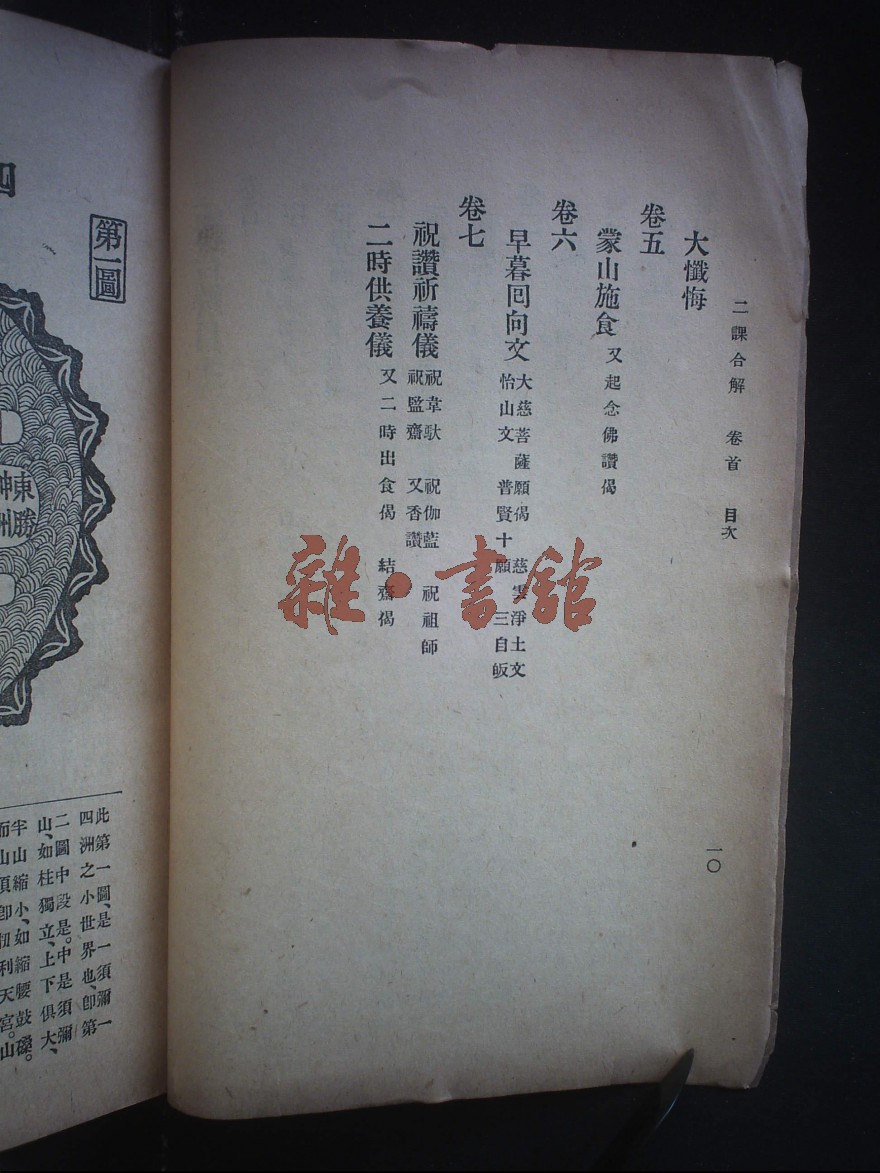 二課合解 卷首 目次
一〇
大懺悔
卷五
蒙山施食 又起念佛讚偈
卷六
早暮囘向文 大慈菩薩願偈 慈雲淨土文
怡山文 普賢十願 三自皈
卷七
祝讚祈禱儀 祝韋馱 祝伽藍 祝祖師
祝監齋 又香讚
二時供養儀 又二時出食偈 結齋偈
雜·書館
四
第一圖
東勝
神洲
此第一圖、是一須彌一
四洲之小世界也、卽第
二圖中段是。中是須彌
山、如柱獨立、上下俱大、
半山縮小、如縮腰鼓磉。
而山頂卽忉利天宮。山